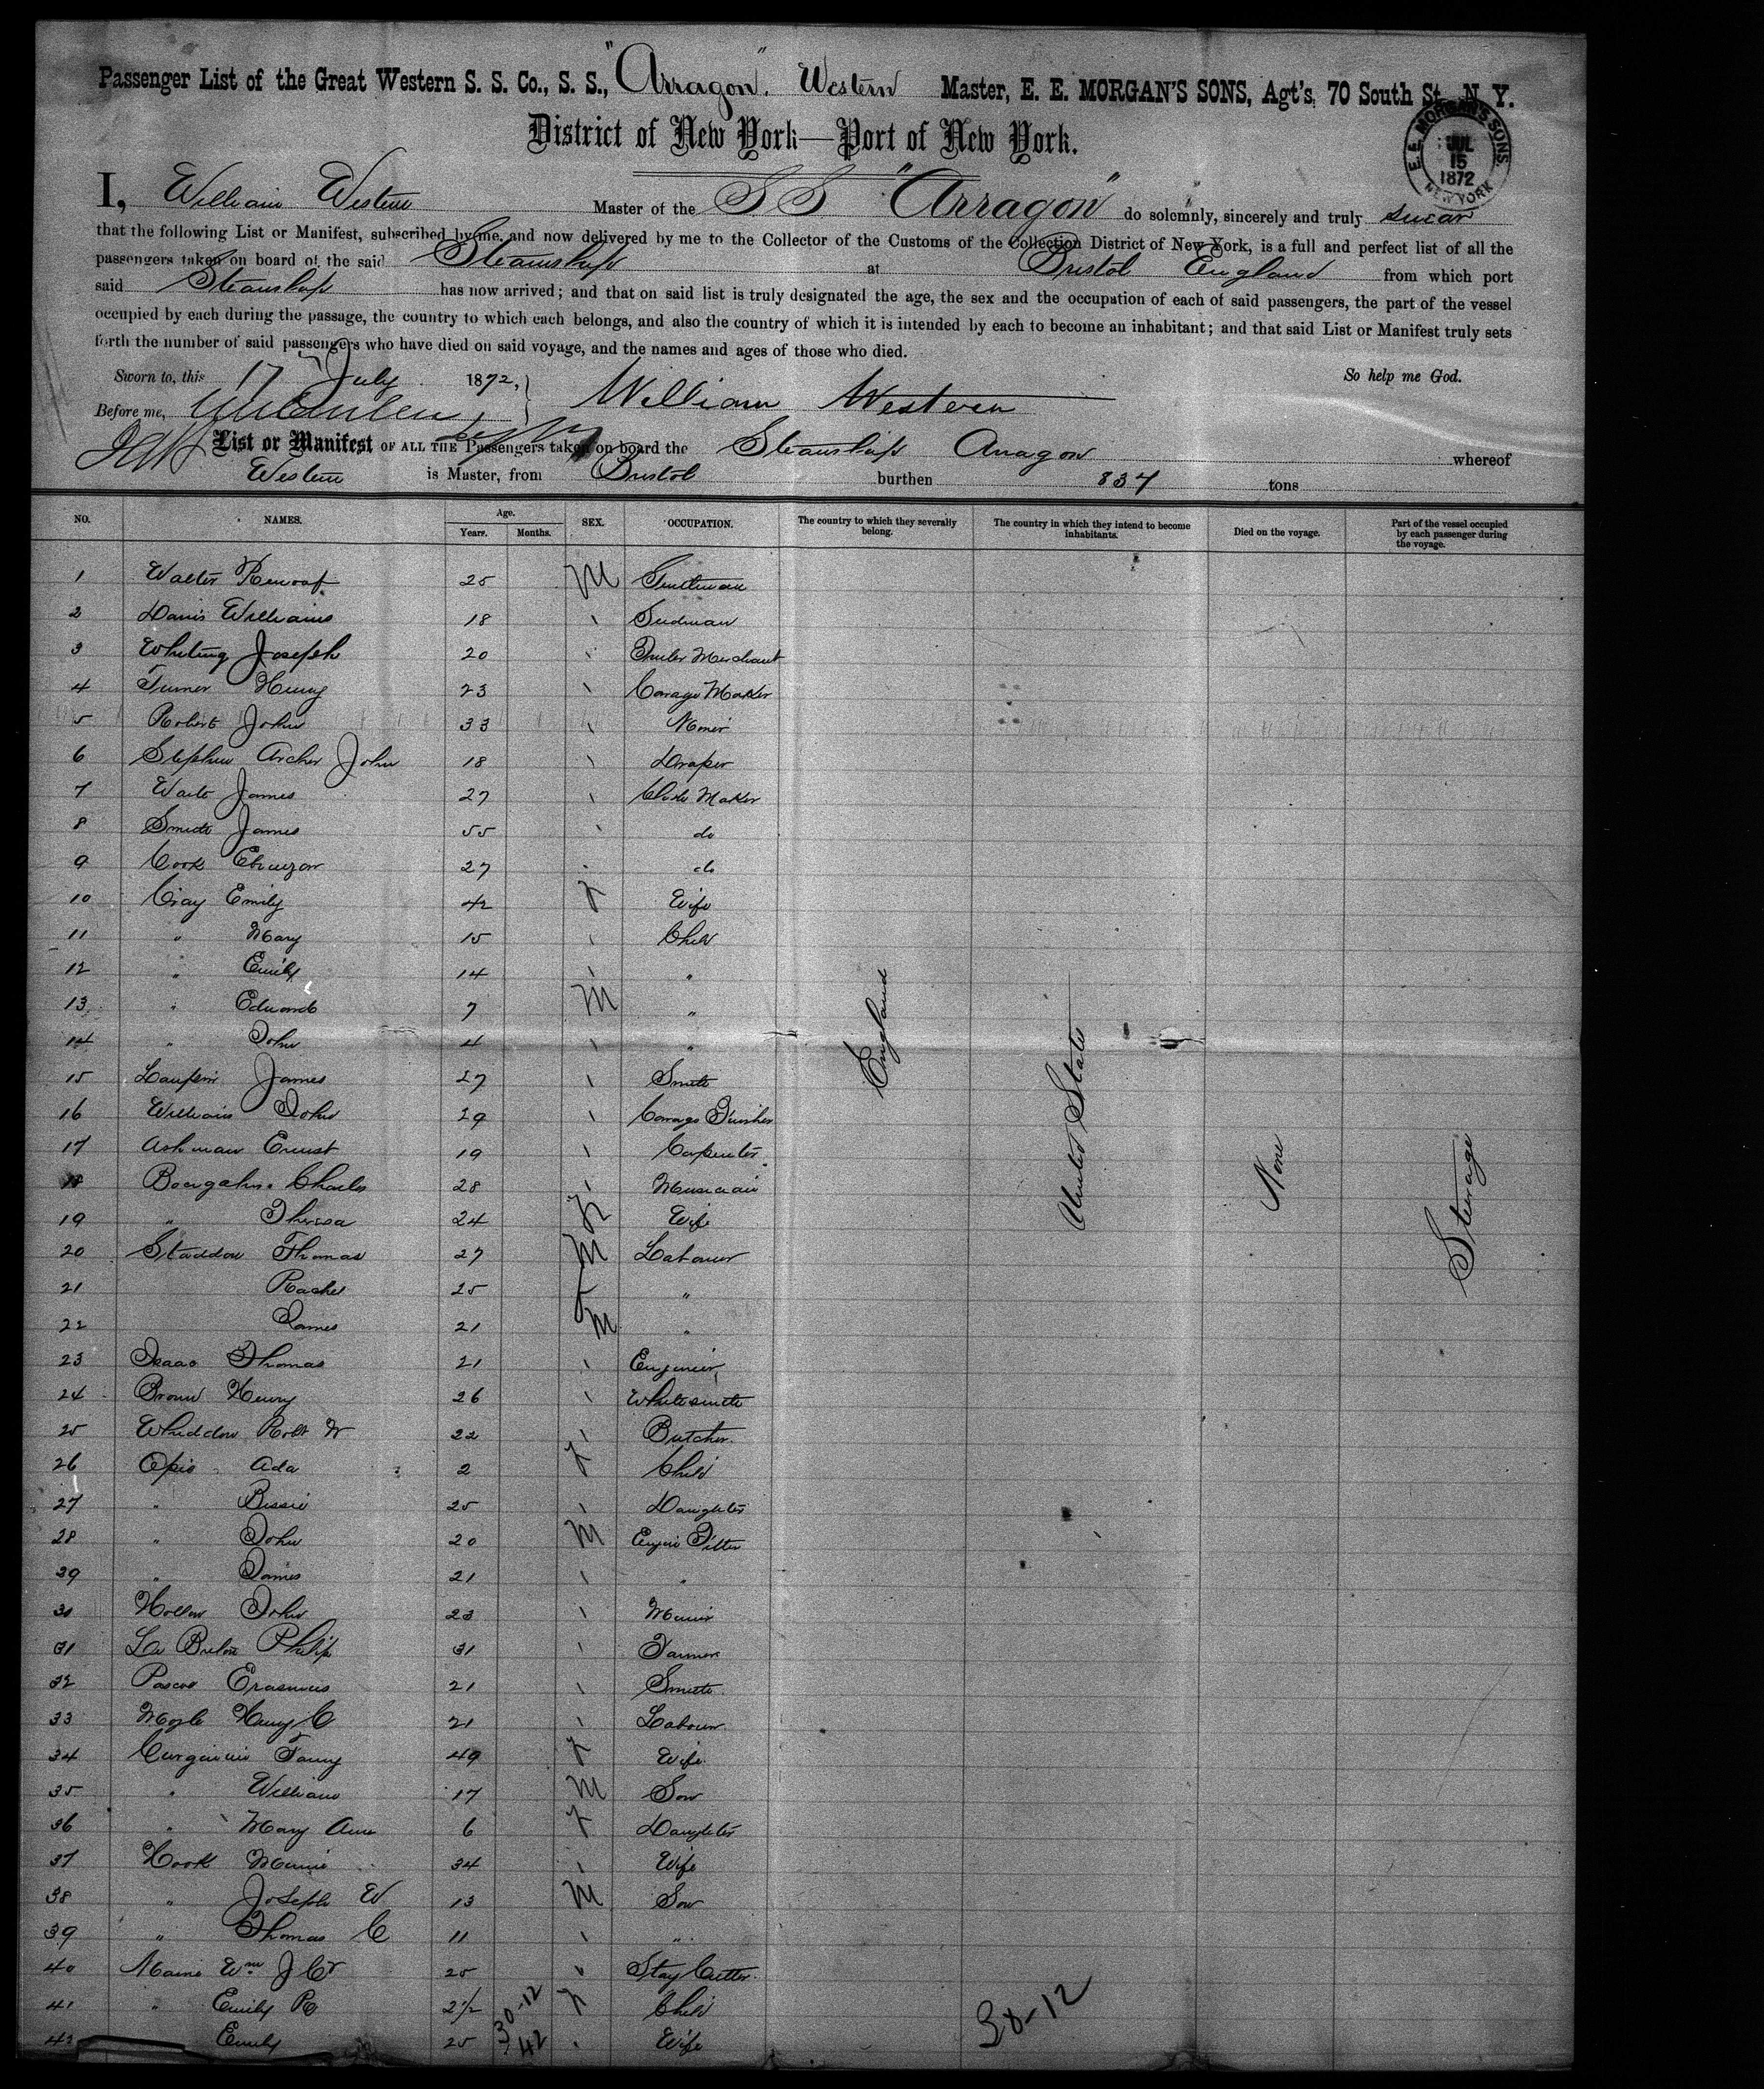 Passenger List of the Great Western S. S. Co., S. S., "Arragon". Western Master, E. E. MORGAN'S SONS, Agt's, 70 South St., N. Y.
District of New York—Port of New York.
E. E. MORGAN'S SONS JUL 15 1872 NEW YORK
I, William Western Master of the SS "Arragon" do solemnly, sincerely and truly swear
that the following List or Manifest, subscribed by me, and now delivered by me to the Collector of the Customs of the Collection District of New York, is a full and perfect list of all the
passengers taken on board of the said Steamship at Bristol England from which port
said Steamship has now arrived; and that on said list is truly designated the age, the sex and the occupation of each of said passengers, the part of the vessel
occupied by each during the passage, the country to which each belongs, and also the country of which it is intended by each to become an inhabitant; and that said List or Manifest truly sets
forth the number of said passengers who have died on said voyage, and the names and ages of those who died.
Sworn to, this 17 July 1872, So help me God.
Before me, William Western
List or Manifest OF ALL THE Passengers taken on board the Steamship Arragon whereof
Western is Master, from Bristol burthen 837 tons
NO. NAMES. Age. Years. Months. SEX. OCCUPATION. The country to which they severally belong. The country in which they intend to become inhabitants. Died on the voyage. Part of the vessel occupied by each passenger during the voyage.
1 Walter 25 M Gentleman
2 Davis Williams 18
3 Whiting Joseph 20 Merchant
4 Turner Henry 23 Maker
5 Robert John 33
6 Stephen Archer John 18 Draper
7 Waite James 27 Maker
8 Smith James 55 do
9 Cook Ebenezer 27 do
10 Emily 42 F Wife
11 " Mary 15 Child
12 " Emily 14 "
13 " Edward 7 M "
14 " John 4 "
15 James 27 Smith
16 William John 29 Finisher
17 Ashman Ernest 19 Carpenter
18 Charles 28 Musician
19 " Theresa 24 F Wife
20 Staddon Thomas 27 M Labourer
21 Rachel 25 F "
22 James 21 M "
23 Isaac Thomas 21 Engineer
24 Brown Henry 26 Whitesmith
25 Whiddon Robt W 22 Butcher
26 Opie Ada 2 F Child
27 " Bessie 25 Daughter
28 " John 20 M Engine Fitter
29 " James 21 "
30 John 23
31 Le Breton Philip 31 Farmer
32 Pascoe Erasmus 21 Smith
33 Moyle Henry C 21 Labour
34 Fanny 49 F Wife
35 " William 17 M Son
36 " Mary Ann 6 F Daughter
37 Hook Minnie 34 Wife
38 " Joseph W 13 M Son
39 " Thomas C 11 "
40 Wm J 25 Stay Cutter
41 " Emily 2½ F Child
42 Emily 25 Wife
England
United State
None
Steerage
30-12
42
30-12